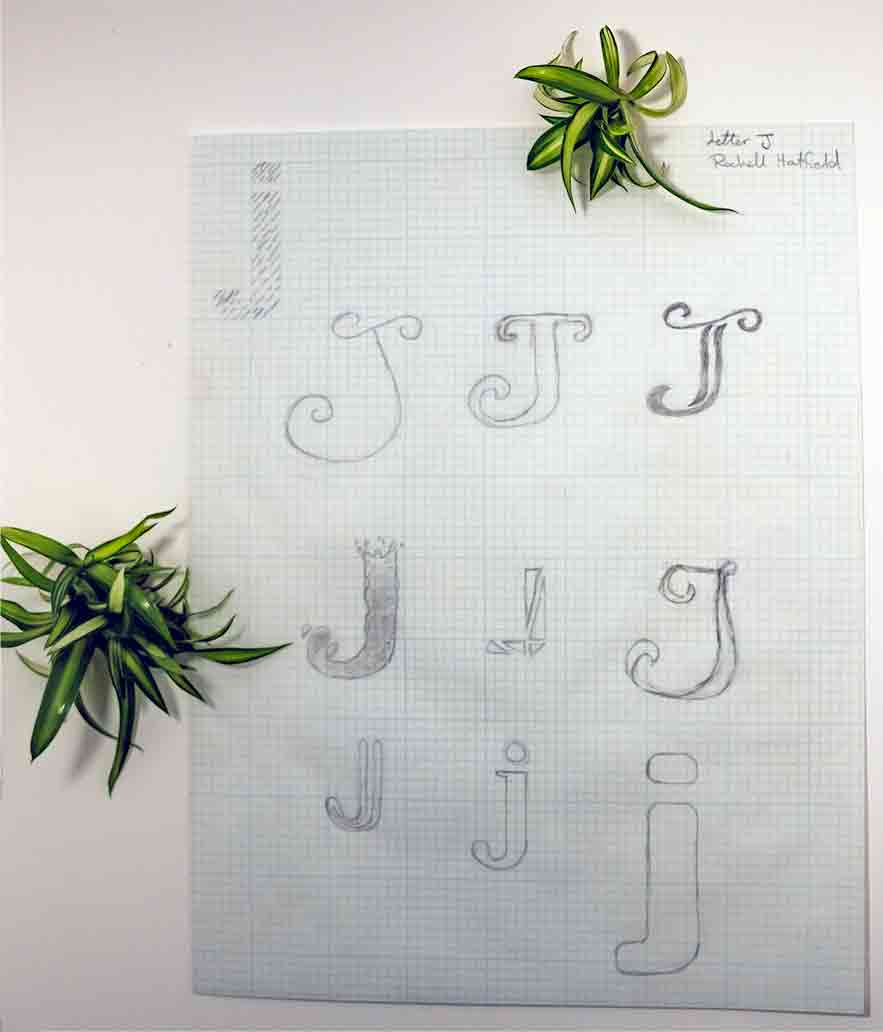 Letter J
Rochell Hatfield
j
J J J
J J J
J j j